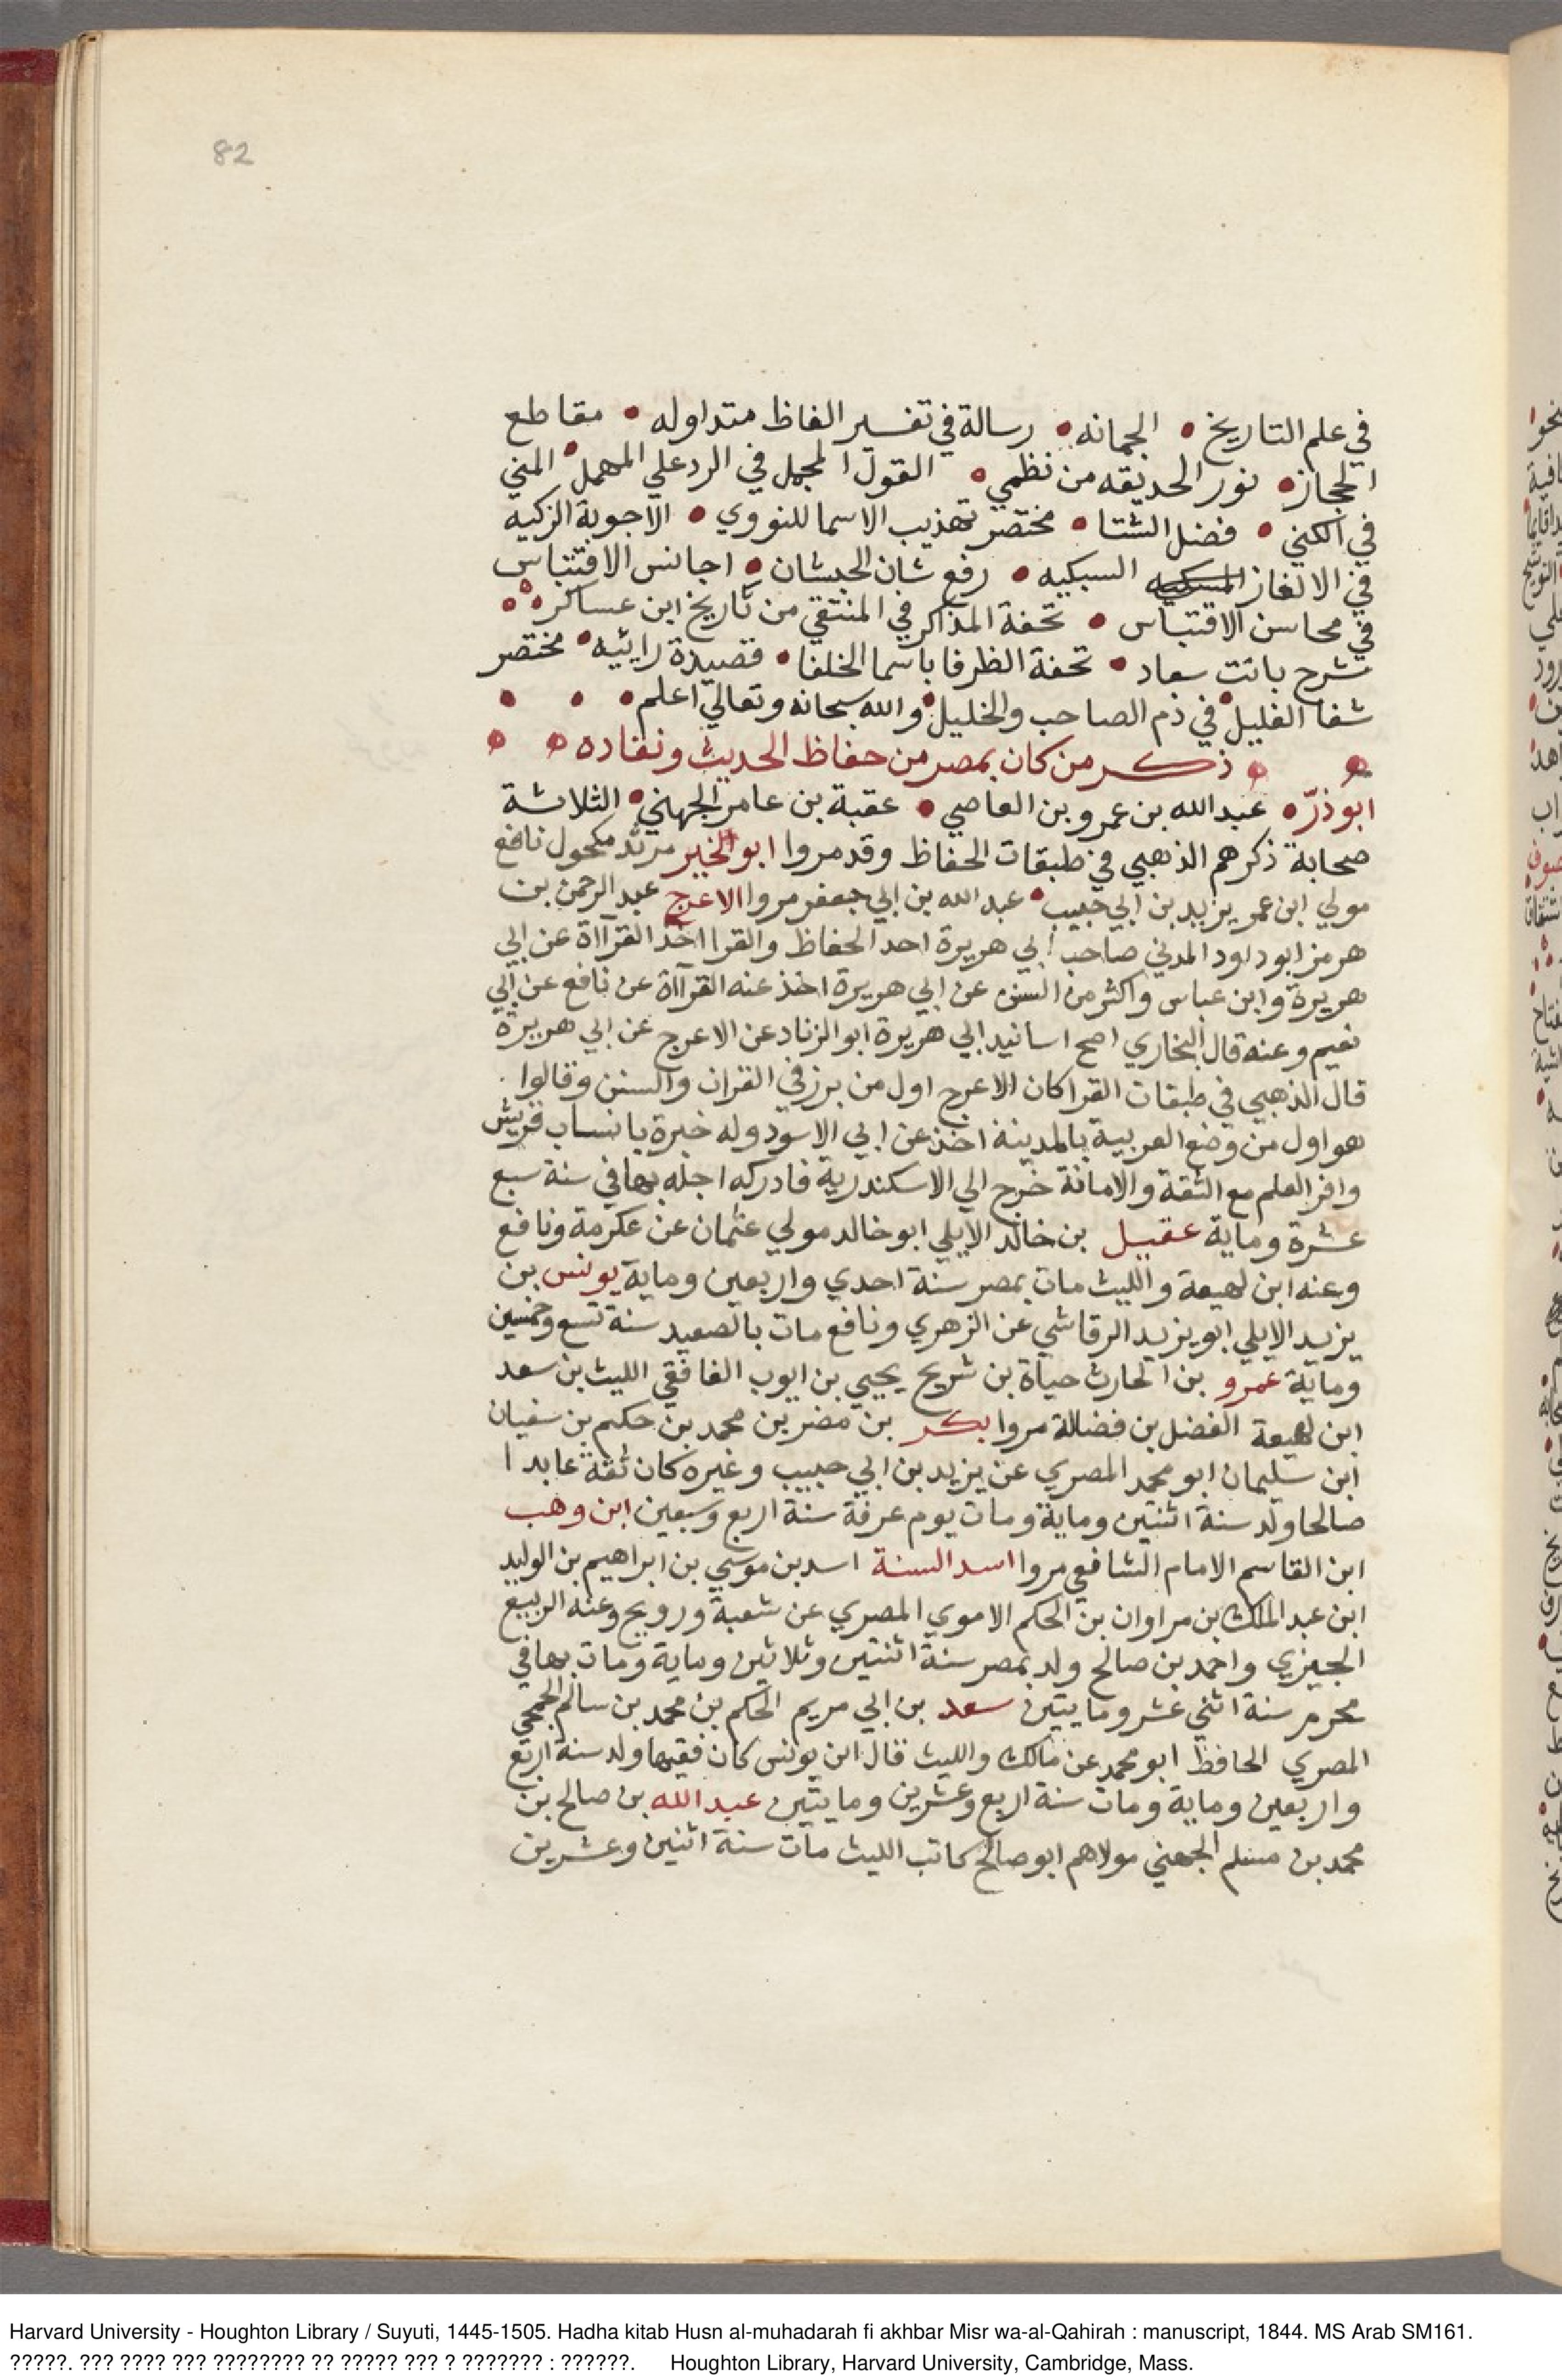 82
في علم التاريخ • الجمانه • رسالة في تفسير الفاظ متداوله • مقاطع
الحجاز • نور الحديقه من نظمي • القول المجمل في الرد علي المهمل • المني
في الكني • فضل الشتا • مختصر تهذيب الاسما للنووي • الاجوبة الزكيه
في الالغاز السبكيه • رفع شان الحبشان • اجانس الاقتباس
في محاسن الاقتباس • تحفة المذاكر في المنتقي من تاريخ ابن عساكر •
شرح بانت سعاد • تحفة الظرفا باسما الخلفا • قصيدة رائيه • مختصر
شفا الغليل في ذم الصاحب والخليل • والله سبحانه وتعالي اعلم •
ذكر من كان بمصر من حفاظ الحديث ونقاده
ابوذرّ • عبد الله بن عمرو بن العاصي • عقبة بن عامر الجهني • الثلاثة
صحابة ذكرهم الذهبي في طبقات الحفاظ وقد مروا ابو الخير مرثد مكحول نافع
مولي ابن عمر يزيد بن ابي حبيب • عبد الله بن ابي جعفر مروا الاعرج عبد الرحمن بن
هرمز ابو داود المدني صاحب ابي هريرة احد الحفاظ والقرا اخذ القرآاة عن ابي
هريرة وابن عباس واكثر من السنن عن ابي هريرة اخذ عنه القرآاة عن نافع عن ابي
نعيم وعنه قال البخاري اصح اسانيد ابي هريرة ابو الزناد عن الاعرج عن ابي هريرة
قال الذهبي في طبقات القرا كان الاعرج اول من برز في القران والسنن وقالوا
هو اول من وضع العربية بالمدينة اخذ عن ابي الاسود وله خبرة بانساب قريش
وافر العلم مع الثقة والامانة خرج الي الاسكندرية فادركه اجله بها في سنة سبع
عشرة وماية عقيل بن خالد الايلي ابو خالد مولي عثمان عن عكرمة ونافع
وعنه ابن لهيعة والليث مات بمصر سنة احدي واربعين وماية يونس بن
يزيد الايلي ابو يزيد الرقاشي عن الزهري ونافع مات بالصعيد سنة تسع وخمسين
وماية عمرو بن الحارث حياة بن شريح يحيي بن ايوب الغافقي الليث بن سعد
ابن لهيعة الفضل بن فضالة مروا بكر بن مضر بن محمد بن حكيم بن سفيان
ابن سليمان ابو محمد المصري عن يزيد بن ابي حبيب وغيره كان ثقة عابدا
صالحا ولد سنة اثنتين وماية ومات يوم عرفة سنة اربع وسبعين ابن وهب
ابن القاسم الامام الشافعي مروا اسد السنة اسد بن موسي بن ابراهيم بن الوليد
ابن عبد الملك بن مراوان بن الحكم الاموي المصري عن شعبة وروبج وعنه الربيع
الجيزي واحمد بن صالح ولد بمصر سنة اثنتين وثلاثين وماية ومات بها في
محرم سنة اثني عشر ومايتين سعد بن ابي مريم الحكم بن محمد بن سالم الجمحي
المصري الحافظ ابو محمد عن مالك والليث قال ابن يونس كان فقيها ولد سنة اربع
واربعين وماية ومات سنة اربع وعشرين ومايتين عبد الله بن صالح بن
محمد بن مسلم الجهني مولاهم ابو صالح كاتب الليث مات سنة اثنين وعشرين
Harvard University - Houghton Library / Suyuti, 1445-1505. Hadha kitab Husn al-muhadarah fi akhbar Misr wa-al-Qahirah : manuscript, 1844. MS Arab SM161.
?????. ??? ???? ??? ???????? ?? ????? ??? ? ??????? : ??????. Houghton Library, Harvard University, Cambridge, Mass.